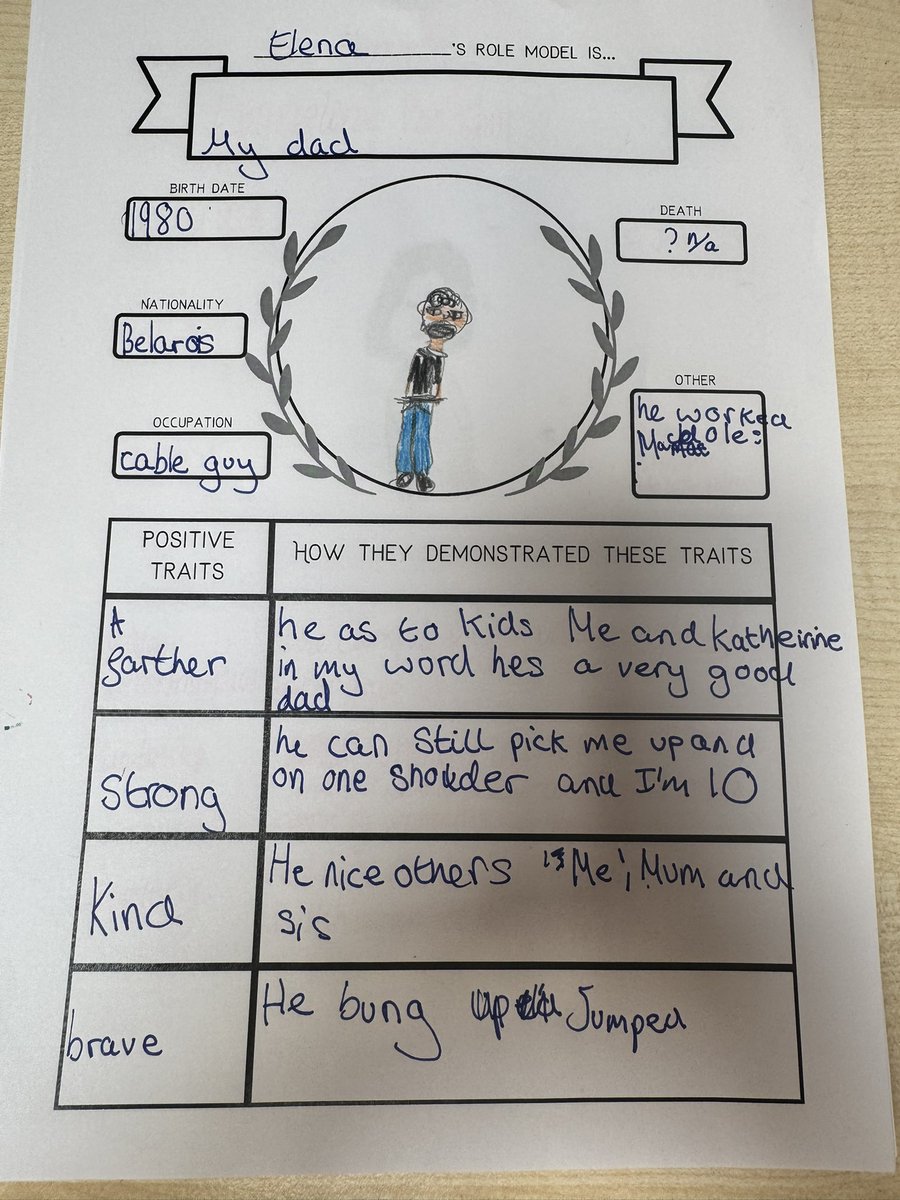 Elena 'S ROLE MODEL IS...
My dad
BIRTH DATE
1980
DEATH
? n/a
NATIONALITY
Belarois
OCCUPATION
cable guy
OTHER
he worked
hole:
POSITIVE TRAITS
HOW THEY DEMONSTRATED THESE TRAITS
A
farther
he as to kids Me and Katheirine
in my word hes a very good
dad
Strong
he can Still pick me up and
on one shoulder and I'm 10
Kind
He nice others is Me, Mum and
sis
brave
He bung Jumped